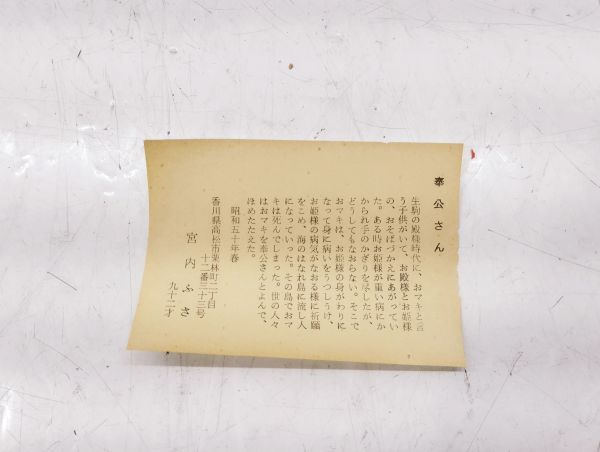 奉公さん
生駒の殿様時代に、おマキと言
う子供がいて、お殿様とお姫様
の、おそばづかえにあがってい
た。ある時お姫様が重い病にか
かられ手のかぎりを尽したが、
どうしてもなおらない。そこで
おマキは、お姫様の身がわりに
なって身に病いをうつしうけ、
お姫様の病気がなおる様に祈願
をこめ、海のはなれ島に流し人
になっていった。その島でおマ
キは死んでしまった。世の人々
はおマキを奉公さんとよんで、
ほめたたえた。
昭和五十年春
香川県高松市栗林町二丁目
十二番三十三号
宮内ふさ
九十二才